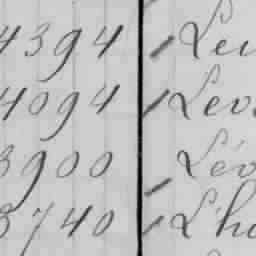 4394 Leu
4094 Leve
3900 Lév
3740 L'ho